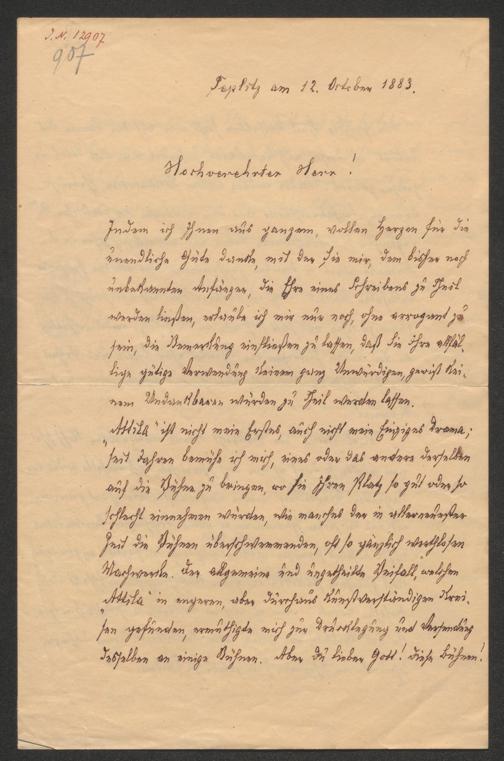 I. N. 12907
907
Teplitz am 12. October 1883.
Hochverehrter Herr!
Indem ich Ihnen aus ganzem, vollen Herzen für die
unendliche Güte danke, mit der Sie mir, dem bisher noch
unbekannten Anfänger, die Ehre eines Schreibens zu Theil
werden ließen, erlaube ich mir nur noch, ohne arrogant zu
sein, die Bemerkung einfließen zu lassen, daß Sie ihre allfäl-
lige gütige Verwendung keinem ganz Unwürdigen, gewiß kei-
nem Undankbaren würden zu Theil werden lassen.
„Attila" ist nicht mein Erstes, auch nicht mein Einziges Drama;
seit Jahren bemühe ich mich, eines oder das andere derselben
auf die Bühne zu bringen, wo sie ihren Platz so gut oder so
schlecht einnehmen würden, wie manches der in allerneuester
Zeit die Bühnen überschwemmenden, oft so gänzlich werthlosen
Machwerke. Der allgemeine und ungetheilte Beifall, welchen
„Attila" in engeren, aber durchaus kunstverständigen Krei-
sen gefunden, ermuthigte mich zur Drucklegung und Versendung
desselben an einige Bühnen. Aber du lieber Gott! diese Bühnen!